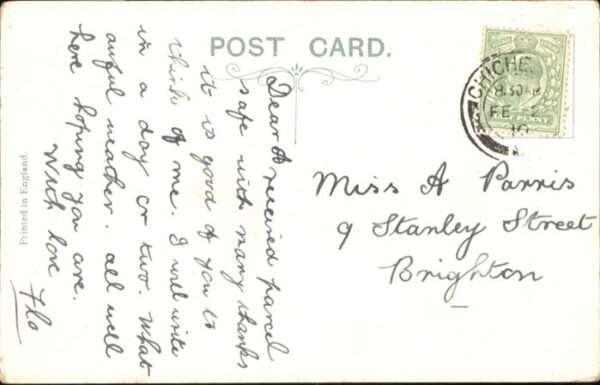 POST CARD.
Dear A received parcel
safe with many thanks
it is good of you to
think of me. I will write
in a day or two. What
awful weather. all well
here hoping you are.
With love
Flo
Miss A Parris
9 Stanley Street
Brighton
Printed in England.
CHICHE
8.30
FE
10
PENNY